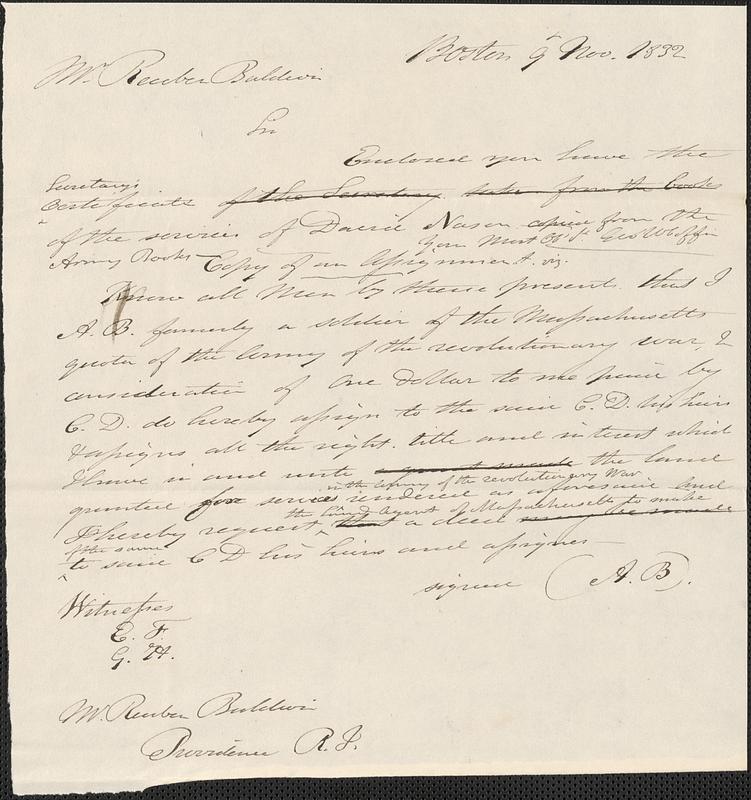 Boston 9 Nov. 1832
Mr Reuben Baldwin
Sir
Enclosed you have the
Secretary's
Certificate of the Secretary taken from the books
of the services of David Nason copied from the
Army Books — Your Most Ob. St. Geo W Coffin
Copy of an Assignment. viz.
Know all Men by these presents that I
A. B. formerly a soldier of the Massachusetts
quota of the Army of the revolutionary war, &
consideration of One dollar to me paid by
C. D. do hereby assign to the said C. D. his heirs
& assigns all the right. title and interest which
I have in and unto a grant made the land
in the army of the revolutionary War
granted for services rendered as aforesaid and
the land agent of Massachusetts to make
I hereby request that a deed may be made
of the same
to said C D his heirs and assigns —
signed (A. B).
Witnesses
E. F.
G. H.
Mr. Reuben Baldwin
Providence R. I.